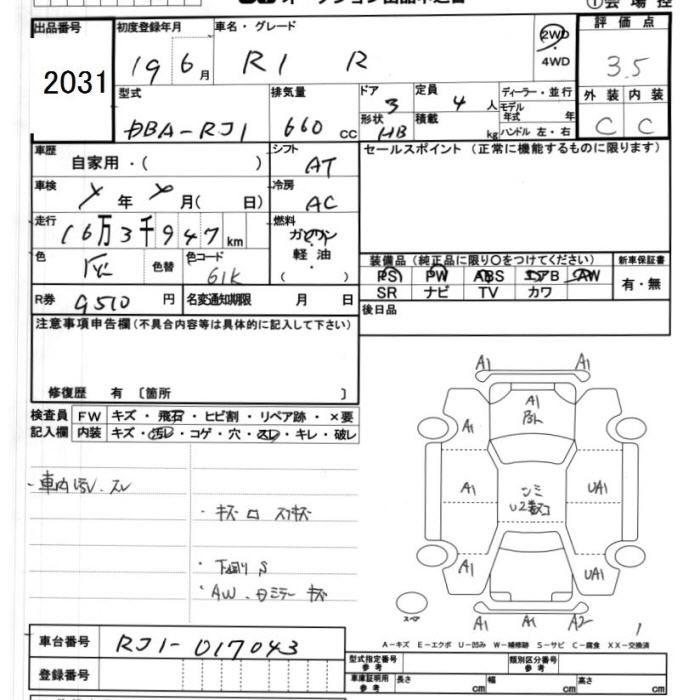 ①会場控
出品番号 初度登録年月 車名・グレード 2WD 評価点
2031 19 6月 R1 R ・4WD 3.5
型式 排気量 ドア 定員 ディーラー・並行 外装 内装
DBA-RJ1 660cc 3 4人 モデル年式 年 C C
形状 HB 積載 kg ハンドル 左・右
車歴 自家用・( ) シフト AT セールスポイント (正常に機能するものに限ります)
車検 年 月( 日) 冷房 AC
走行 16万3千947km 燃料 ガソリン
軽油
( )
色 色替 色コード 61K
装備品 (純正品に限り○をつけてください) 新車保証書
PS PW ABS エアB AW 有・無
SR ナビ TV カワ
R券 9510円 名変通知期限 月 日 後日品
注意事項申告欄 (不具合内容等は具体的に記入して下さい)
修復歴 有 〔箇所 〕
検査員 FW キズ・飛石・ヒビ割・リペア跡・×要
記入欄 内装 キズ・汚レ・コゲ・穴・スレ・キレ・破レ
・車内汚レ.スレ
・下廻りS
A1 A1
A1
A1
A1 UA1
U2
A1 UA1
A1 A1 A2
スペア
A-キズ E-エクボ U-凹み W-補修跡 S-サビ C-腐食 XX-交換済
車台番号 RJ1-017043
登録番号
型式指定番号 参考 類別区分番号 参考
車庫証明用 参考 長さ cm 幅 cm 高さ cm